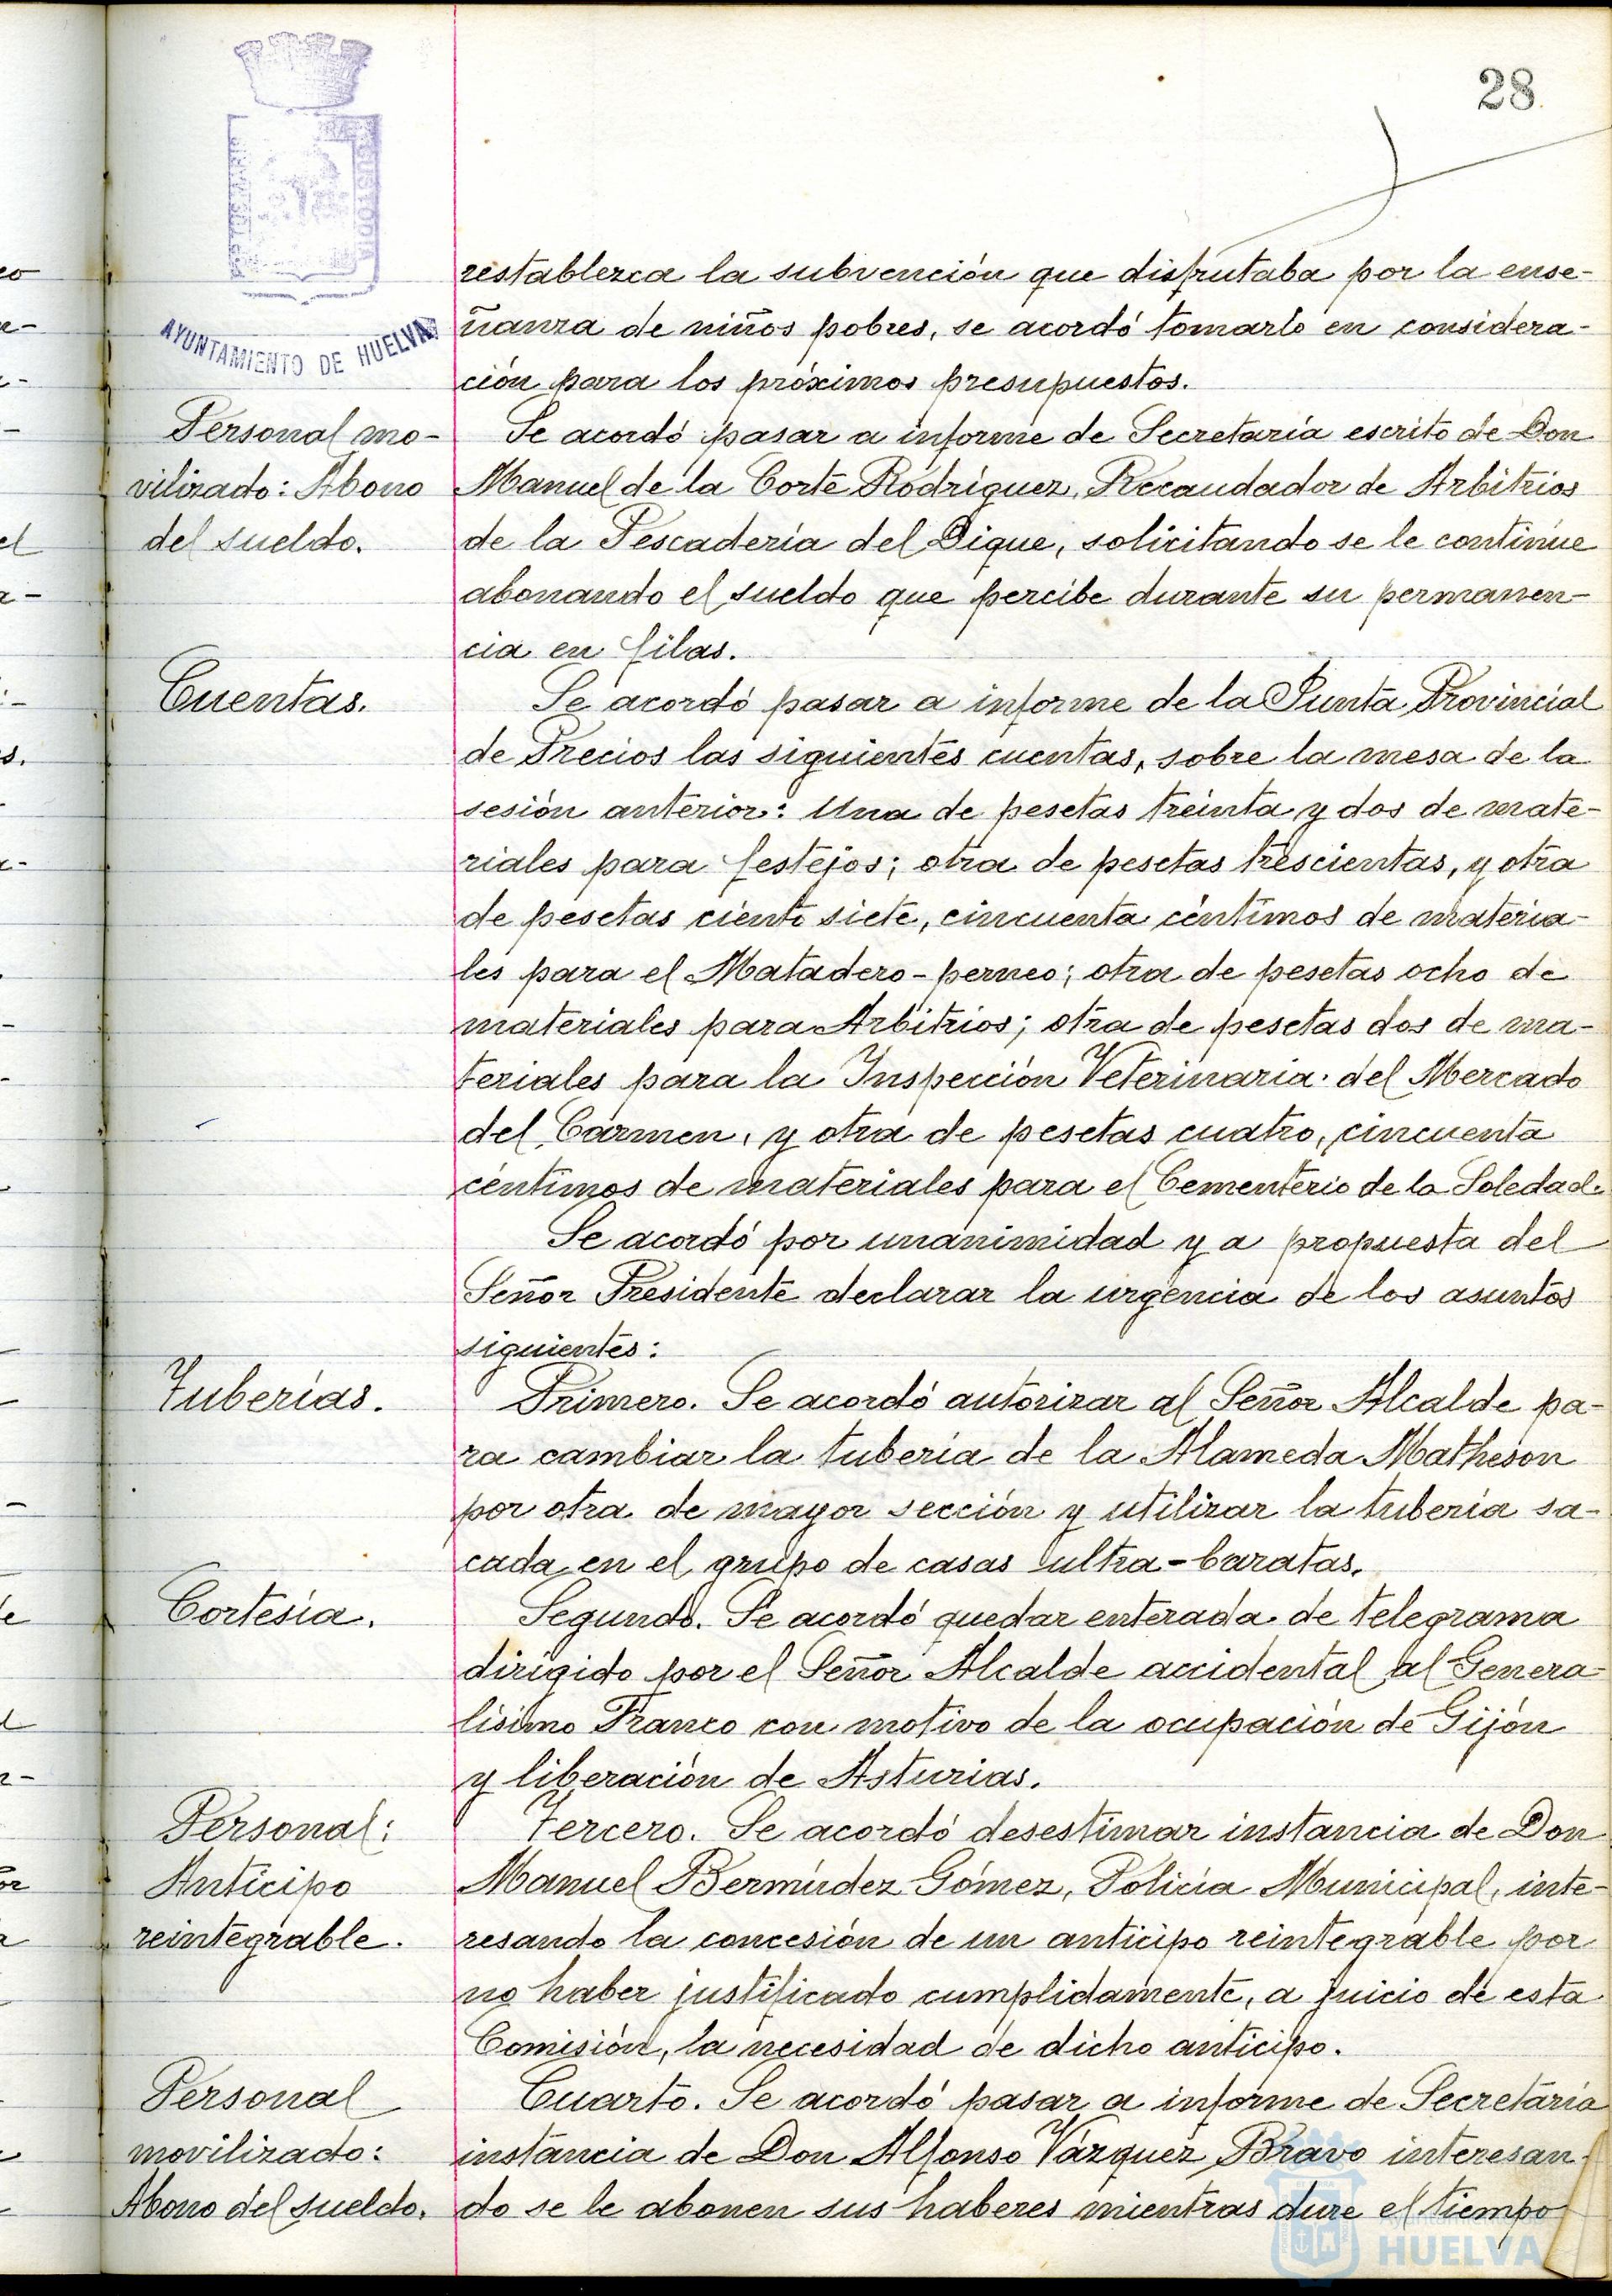 28
AYUNTAMIENTO DE HUELVA
restablezca la subvención que disfrutaba por la ense-
ñanza de niños pobres, se acordó tomarlo en considera-
ción para los próximos presupuestos.
Personal mo-
vilizado: Abono
del sueldo.
Se acordó pasar a informe de Secretaría escrito de Don
Manuel de la Corte Rodríguez, Recaudador de Arbitrios
de la Pescadería del Dique, solicitando se le continúe
abonando el sueldo que percibe durante su permanen-
cia en filas.
Cuentas.
Se acordó pasar a informe de la Junta Provincial
de Precios las siguientes cuentas, sobre la mesa de la
sesión anterior: Una de pesetas treinta y dos de mate-
riales para festejos; otra de pesetas trescientas, y otra
de pesetas ciento siete, cincuenta céntimos de materia-
les para el Matadero-perneo; otra de pesetas ocho de
materiales para Arbitrios; otra de pesetas dos de ma-
teriales para la Inspección Veterinaria del Mercado
del Carmen, y otra de pesetas cuatro, cincuenta
céntimos de materiales para el Cementerio de la Soledad.
Se acordó por unanimidad y a propuesta del
Señor Presidente declarar la urgencia de los asuntos
siguientes:
Tuberías.
Primero. Se acordó autorizar al Señor Alcalde pa-
ra cambiar la tubería de la Alameda Matheson
por otra de mayor sección y utilizar la tubería sa-
cada en el grupo de casas ultra-baratas.
Cortesía.
Segundo. Se acordó quedar enterada de telegrama
dirigido por el Señor Alcalde accidental al Genera-
lísimo Franco con motivo de la ocupación de Gijón
y liberación de Asturias.
Personal:
Anticipo
reintegrable.
Tercero. Se acordó desestimar instancia de Don
Manuel Bermúdez Gómez, Policía Municipal, inte-
resando la concesión de un anticipo reintegrable por
no haber justificado cumplidamente, a juicio de esta
Comisión, la necesidad de dicho anticipo.
Personal
movilizado:
Abono del sueldo.
Cuarto. Se acordó pasar a informe de Secretaría
instancia de Don Alfonso Vázquez Bravo interesan-
do se le abonen sus haberes mientras dure el tiempo
HUELVA